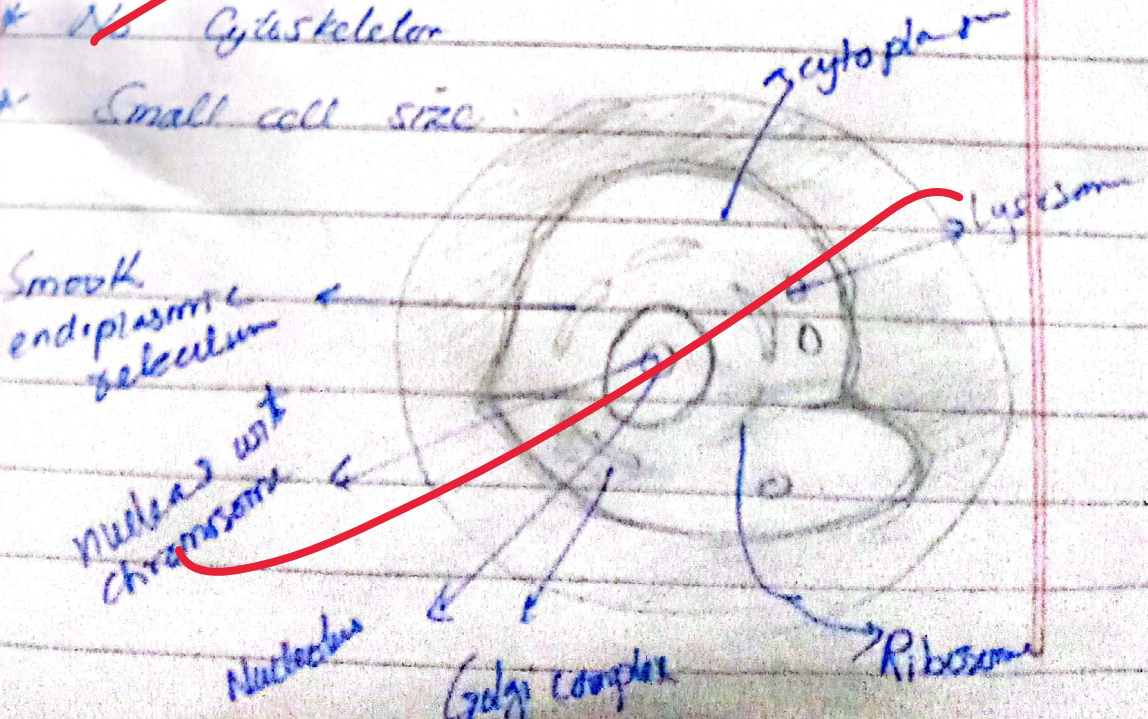 * No Cytoskeleton
* Small cell size
cytoplasm
Lysosom
Smooth
endoplasmic
reticulum
nuclear with
chromosome
Nucleolus
Golgi complex
Ribosome